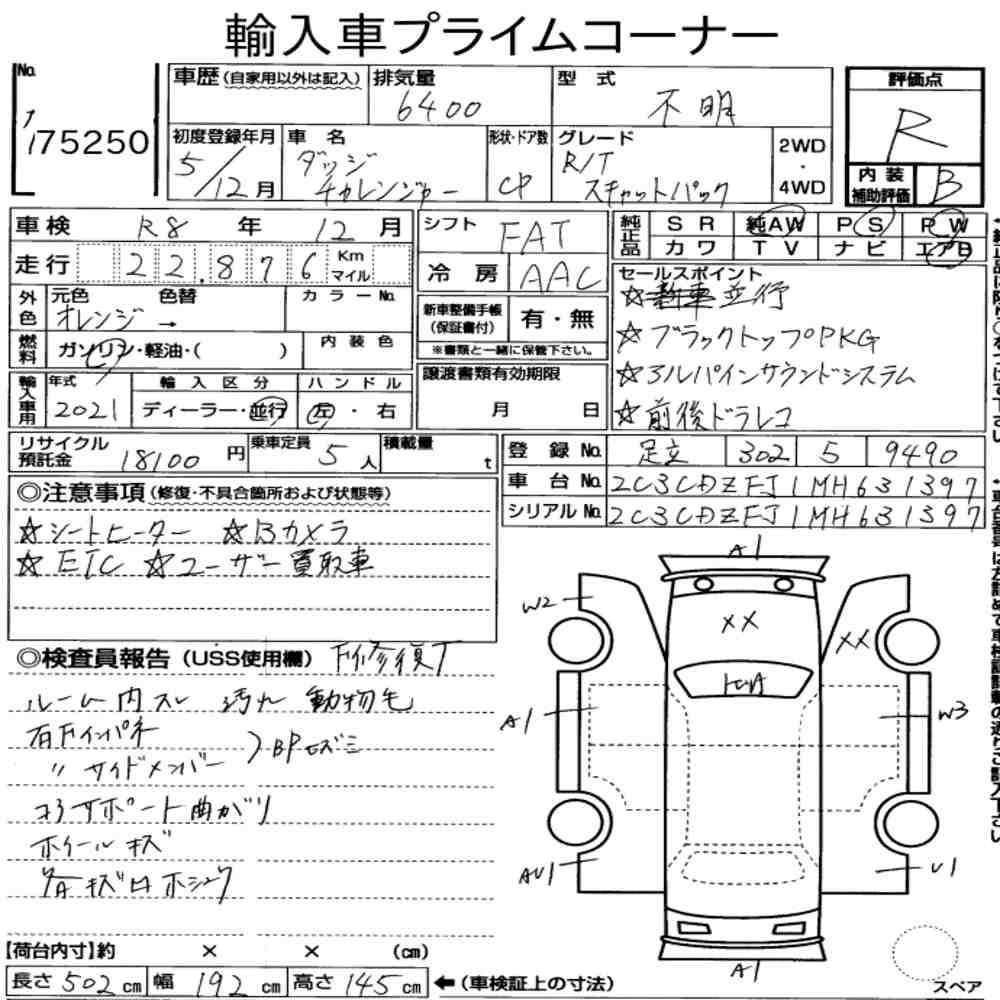 輸入車プライムコーナー
No. 75250
車歴(自家用以外は記入)
排気量 6400
型式 不明
評価点 R
内装補助評価 B
初度登録年月 5/12月
車名 ダッジ チャレンジャー
形状・ドア数 CP
グレード R/T スキャットパック
2WD・4WD
車検 R8年 12月
シフト FAT
純正品 SR 純AW PS PW
カワ TV ナビ エアB
走行 22,876 Km マイル
冷房 AAC
セールスポイント
☆新車並行
☆ブラックトップPKG
☆アルパインサウンドシステム
☆前後ドラレコ
外色 元色 色替 カラーNo.
オレンジ →
新車整備手帳(保証書付) 有・無
※書類と一緒に保管下さい。
燃料 ガソリン・軽油・( ) 内装色
輸入車用 年式 2021
輸入区分 ディーラー・並行
ハンドル 左・右
譲渡書類有効期限 月 日
リサイクル預託金 18100円
乗車定員 5人
積載量 t
登録No. 足立 302 5 9490
車台No. 2C3CDZFJ1MH631397
シリアルNo. 2C3CDZFJ1MH631397
◎注意事項(修復・不具合箇所および状態等)
☆シートヒーター ☆Bカメラ
☆ETC ☆ユーザー買取車
◎検査員報告(USS使用欄) 下修復了
ルーム内スレ 汚れ 動物毛
右Fインパネ
〃サイドメンバー )BPヒズミ
コアサポート曲がり
ホイールキズ
A1
W2
XX
XX
A1
W3
AU1
U1
A1
スペア
【荷台内寸】約 × × (cm)
長さ 502cm 幅 192cm 高さ 145cm ←(車検証上の寸法)